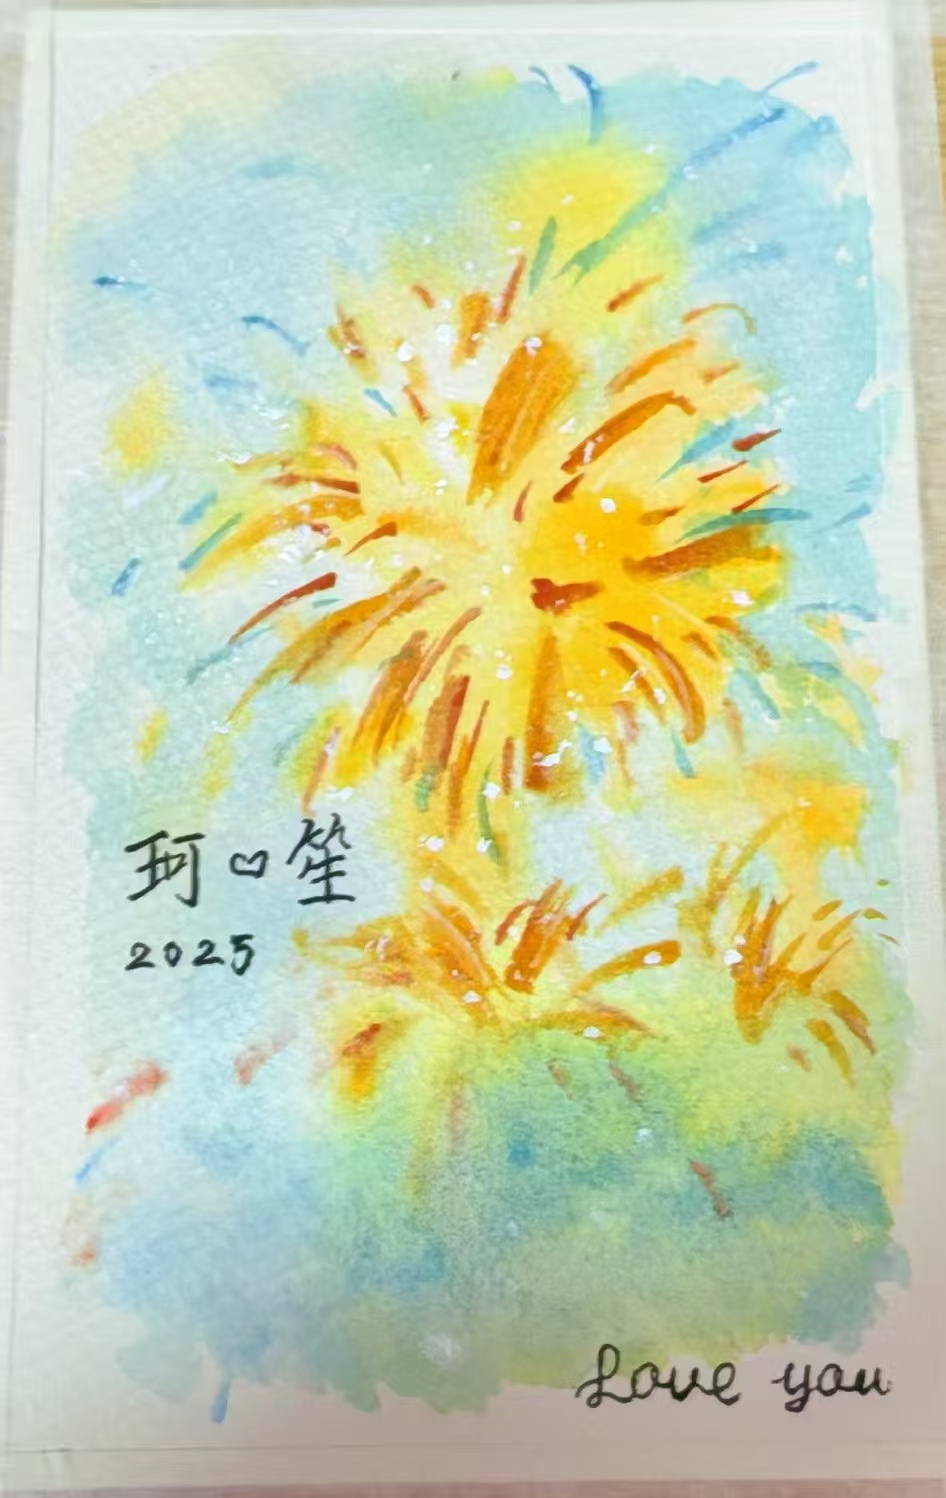 珂♡笙
2025
Love you